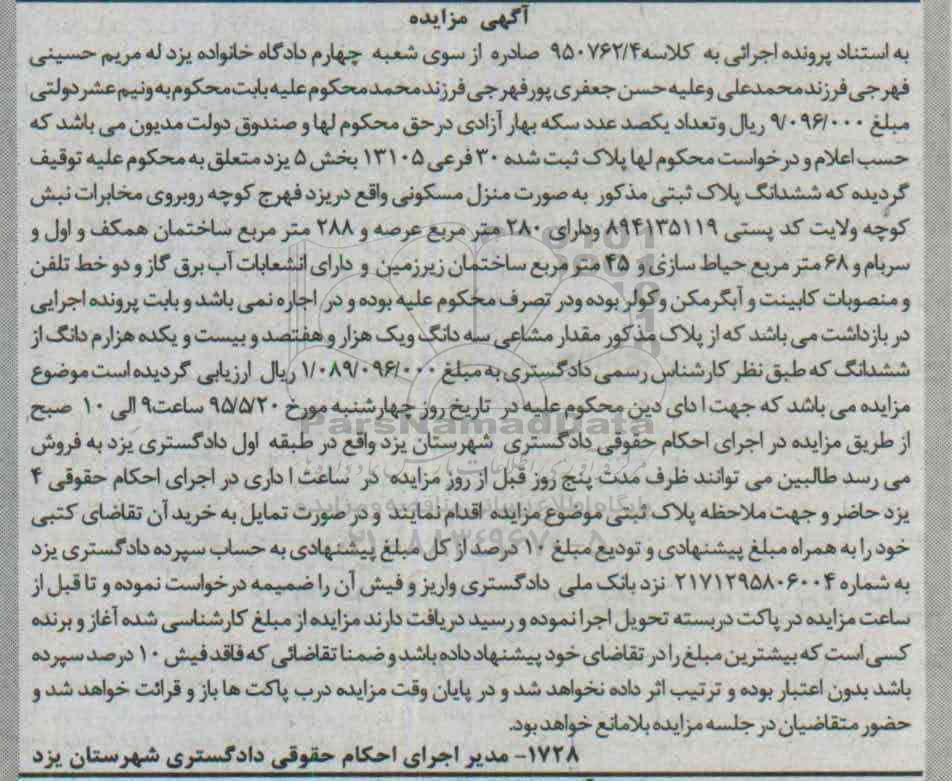 آگهی مزایده
به استناد پرونده اجرائی به کلاسه۹۵۰۷۶۲/۴ صادره از سوی شعبه چهارم دادگاه خانواده یزد له مریم حسینی
فهرجی فرزند محمدعلی وعلیه حسن جعفری پور فهرجی فرزند محمد محکوم علیه بابت محکوم به ونیم عشر دولتی
مبلغ ۹/۰۹۶/۰۰۰ ریال وتعداد یکصد عدد سکه بهار آزادی در حق محکوم لها و صندوق دولت مدیون می باشد که
حسب اعلام و درخواست محکوم لها پلاک ثبت شده ۳۰ فرعی ۱۳۱۰۵ بخش ۵ یزد متعلق به محکوم علیه توقیف
گردیده که ششدانگ پلاک ثبتی مذکور به صورت منزل مسکونی واقع دریزد فهرج کوچه روبروی مخابرات نبش
کوچه ولایت کد پستی ۸۹۴۱۳۵۱۱۹ ودارای ۲۸۰ متر مربع عرصه و ۲۸۸ متر مربع ساختمان همکف و اول و
سربام و ۶۸ متر مربع حیاط سازی و ۴۵ متر مربع ساختمان زیرزمین و دارای انشعابات آب برق گاز و دو خط تلفن
و منصوبات کابینت و آبگرمکن وکولر بوده ودر تصرف محکوم علیه بوده و در اجاره نمی باشد و بابت پرونده اجرایی
در بازداشت می باشد که از پلاک مذکور مقدار مشاعی سه دانگ ویک هزار و هفتصد و بیست و یکده هزارم دانگ از
ششدانگ که طبق نظر کارشناس رسمی دادگستری به مبلغ ۱/۰۸۹/۰۹۶/۰۰۰ ریال ارزیابی گردیده است موضوع
مزایده می باشد که جهت ا دای دین محکوم علیه در تاریخ روز چهارشنبه مورخ ۹۵/۵/۲۰ ساعت۹ الی ۱۰ صبح
از طریق مزایده در اجرای احکام حقوقی دادگستری شهرستان یزد واقع در طبقه اول دادگستری یزد به فروش
می رسد طالبین می توانند ظرف مدت پنج روز قبل از روز مزایده در ساعت ا داری در اجرای احکام حقوقی ۴
یزد حاضر و جهت ملاحظه پلاک ثبتی موضوع مزایده اقدام نمایند و در صورت تمایل به خرید آن تقاضای کتبی
خود را به همراه مبلغ پیشنهادی و تودیع مبلغ ۱۰ درصد از کل مبلغ پیشنهادی به حساب سپرده دادگستری یزد
به شماره ۲۱۷۱۲۹۵۸۰۶۰۰۴ نزد بانک ملی دادگستری واریز و فیش آن را ضمیمه درخواست نموده و تا قبل از
ساعت مزایده در پاکت دربسته تحویل اجرا نموده و رسید دریافت دارند مزایده از مبلغ کارشناسی شده آغاز و برنده
کسی است که بیشترین مبلغ را در تقاضای خود پیشنهاد داده باشد و ضمنا تقاضائی که فاقد فیش ۱۰ درصد سپرده
باشد بدون اعتبار بوده و ترتیب اثر داده نخواهد شد و در پایان وقت مزایده درب پاکت ها باز و قرائت خواهد شد و
حضور متقاضیان در جلسه مزایده بلامانع خواهد بود.
۱۷۲۸- مدیر اجرای احکام حقوقی دادگستری شهرستان یزد
ParsNamadData